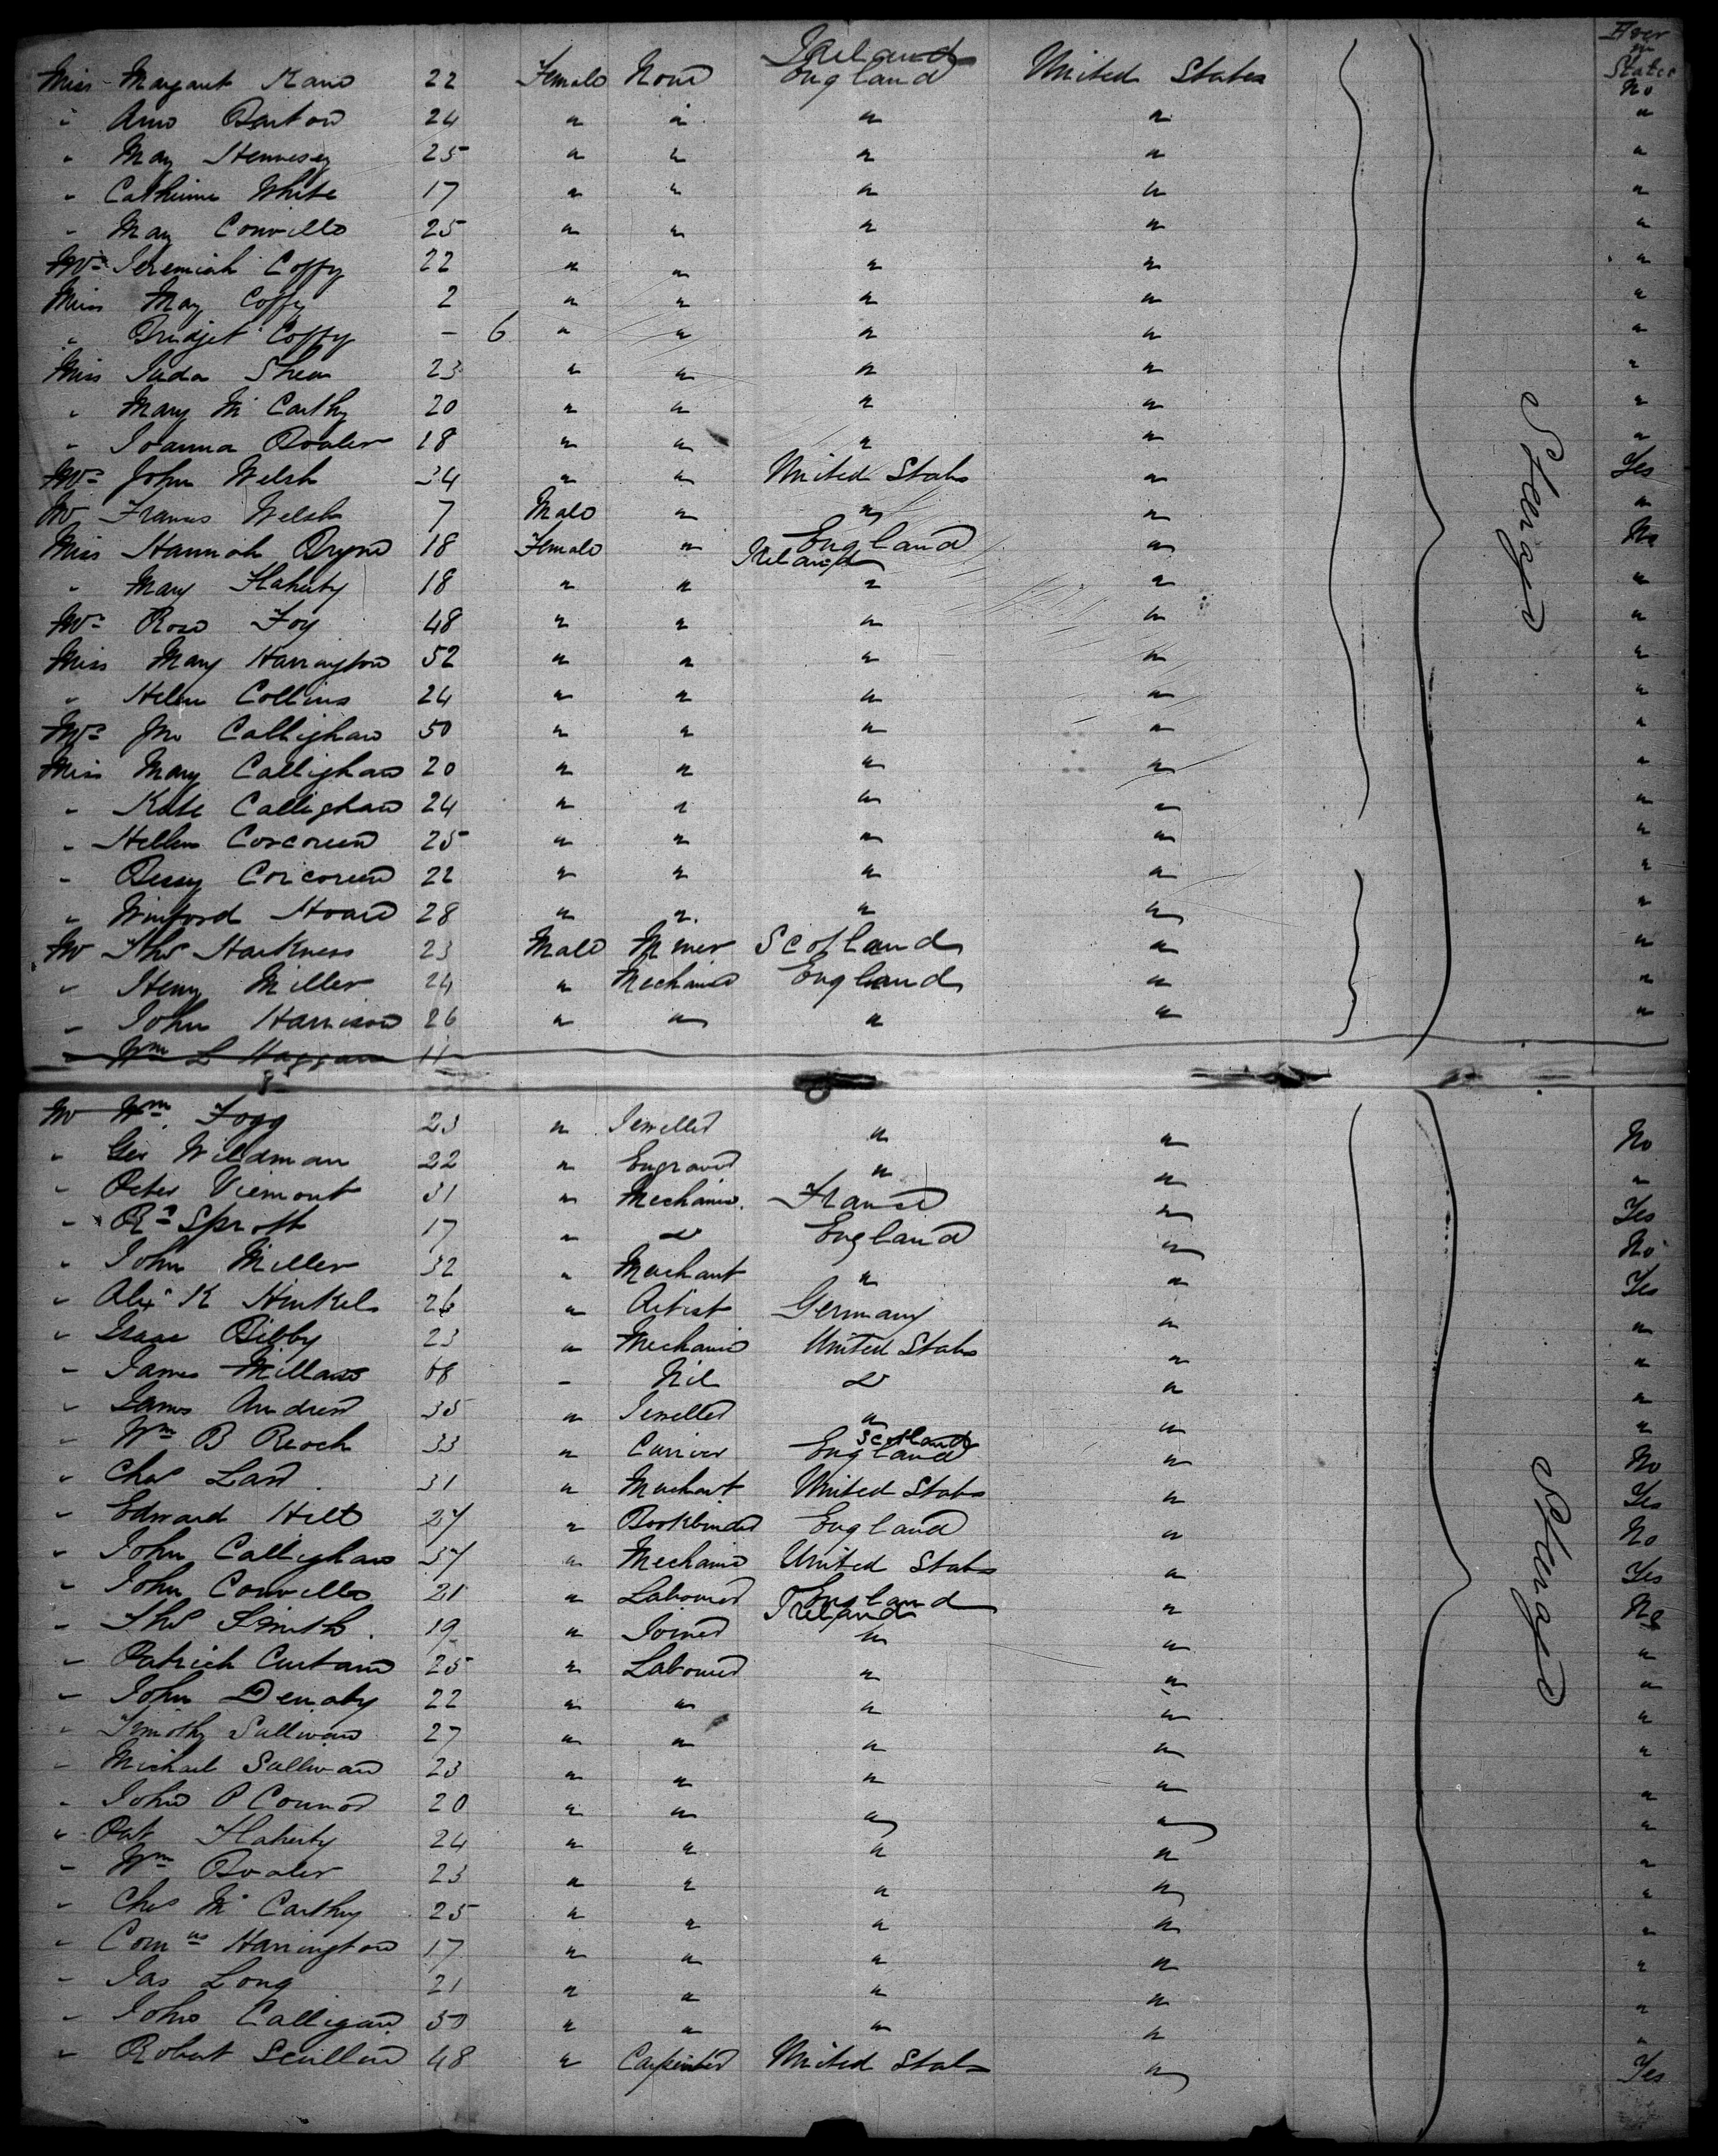 Ever in States
Miss Margaret Kane 22 Female None Ireland England United States No
" Ann Barton 24 " " " " "
" Mary Hennesey 25 " " " " "
" Catherine White 17 " " " " "
" Mary Conville 25 " " " " "
Mrs Jeremiah Coffy 22 " " " " "
Miss May Coffy 2 " " " " "
" Bridget Coffy - 6 " " " " "
Miss Juda Shea 23 " " " " "
" Mary Mc Carthy 20 " " " " "
" Joanna Boaler 18 " " " " "
Mrs John Welsh 34 " " United States " Yes
Mr Francis Welsh 7 Male " " " "
Miss Hannah Bryne 18 Female " England Ireland " No
" Mary Flaherty 18 " " " " "
Mrs Rose Foy 48 " " " " "
Miss Mary Harrington 52 " " " " "
" Helen Collins 24 " " " " "
Mrs Jno Callighan 50 " " " " "
Miss Mary Callighan 20 " " " " "
" Kate Callighan 24 " " " " "
" Hellen Corcoreen 25 " " " " "
" Bessy Corcoreen 22 " " " " "
" Winford Hoare 28 " " " " "
Mr Thos Harkness 23 Male Miner Scotland " "
" Henry Miller 24 " Mechanic England " "
" John Harrison 26 " " " " "
" Wm L Haggan 11
Steerage
Mr Wm Fogg 23 " Jeweller " " No
" Geo Wildman 22 " Engraver " " "
" Peter Viemont 31 " Mechanic France " Yes
" Rt Sprott 17 " Do England " No
" John Miller 32 " Merchant " " Yes
" Alex K Hinkel 26 " Artist Germany " "
" Isaac Bibby 23 " Mechanic United States " "
" James Millar 68 - Nil Do " "
" James Andrew 35 " Jeweller " " "
" Wm B Reoch 33 " Currier Scotland England " No
" Chas Lard 31 " Merchant United States " Yes
" Edward Hilt 27 " Bookbinder England " No
" John Callighan 37 " Mechanic United States " Yes
" John Conville 21 " Labourer England Ireland " No
" Thos Smith 19 " Joiner " " "
" Patrick Curtain 25 " Labourer " " "
" John Denahy 22 " " " " "
" Timothy Sullivan 27 " " " " "
" Michael Sullivan 23 " " " " "
" John O Connor 20 " " " " "
" Pat Flaherty 24 " " " " "
" Wm Boaler 23 " " " " "
" Chas Mc Carthy 25 " " " " "
" Corns Harrington 17 " " " " "
" Jas Long 21 " " " " "
" John Calligan 50 " " " " "
" Robert Scullen 48 " Carpenter United States " Yes
Steerage